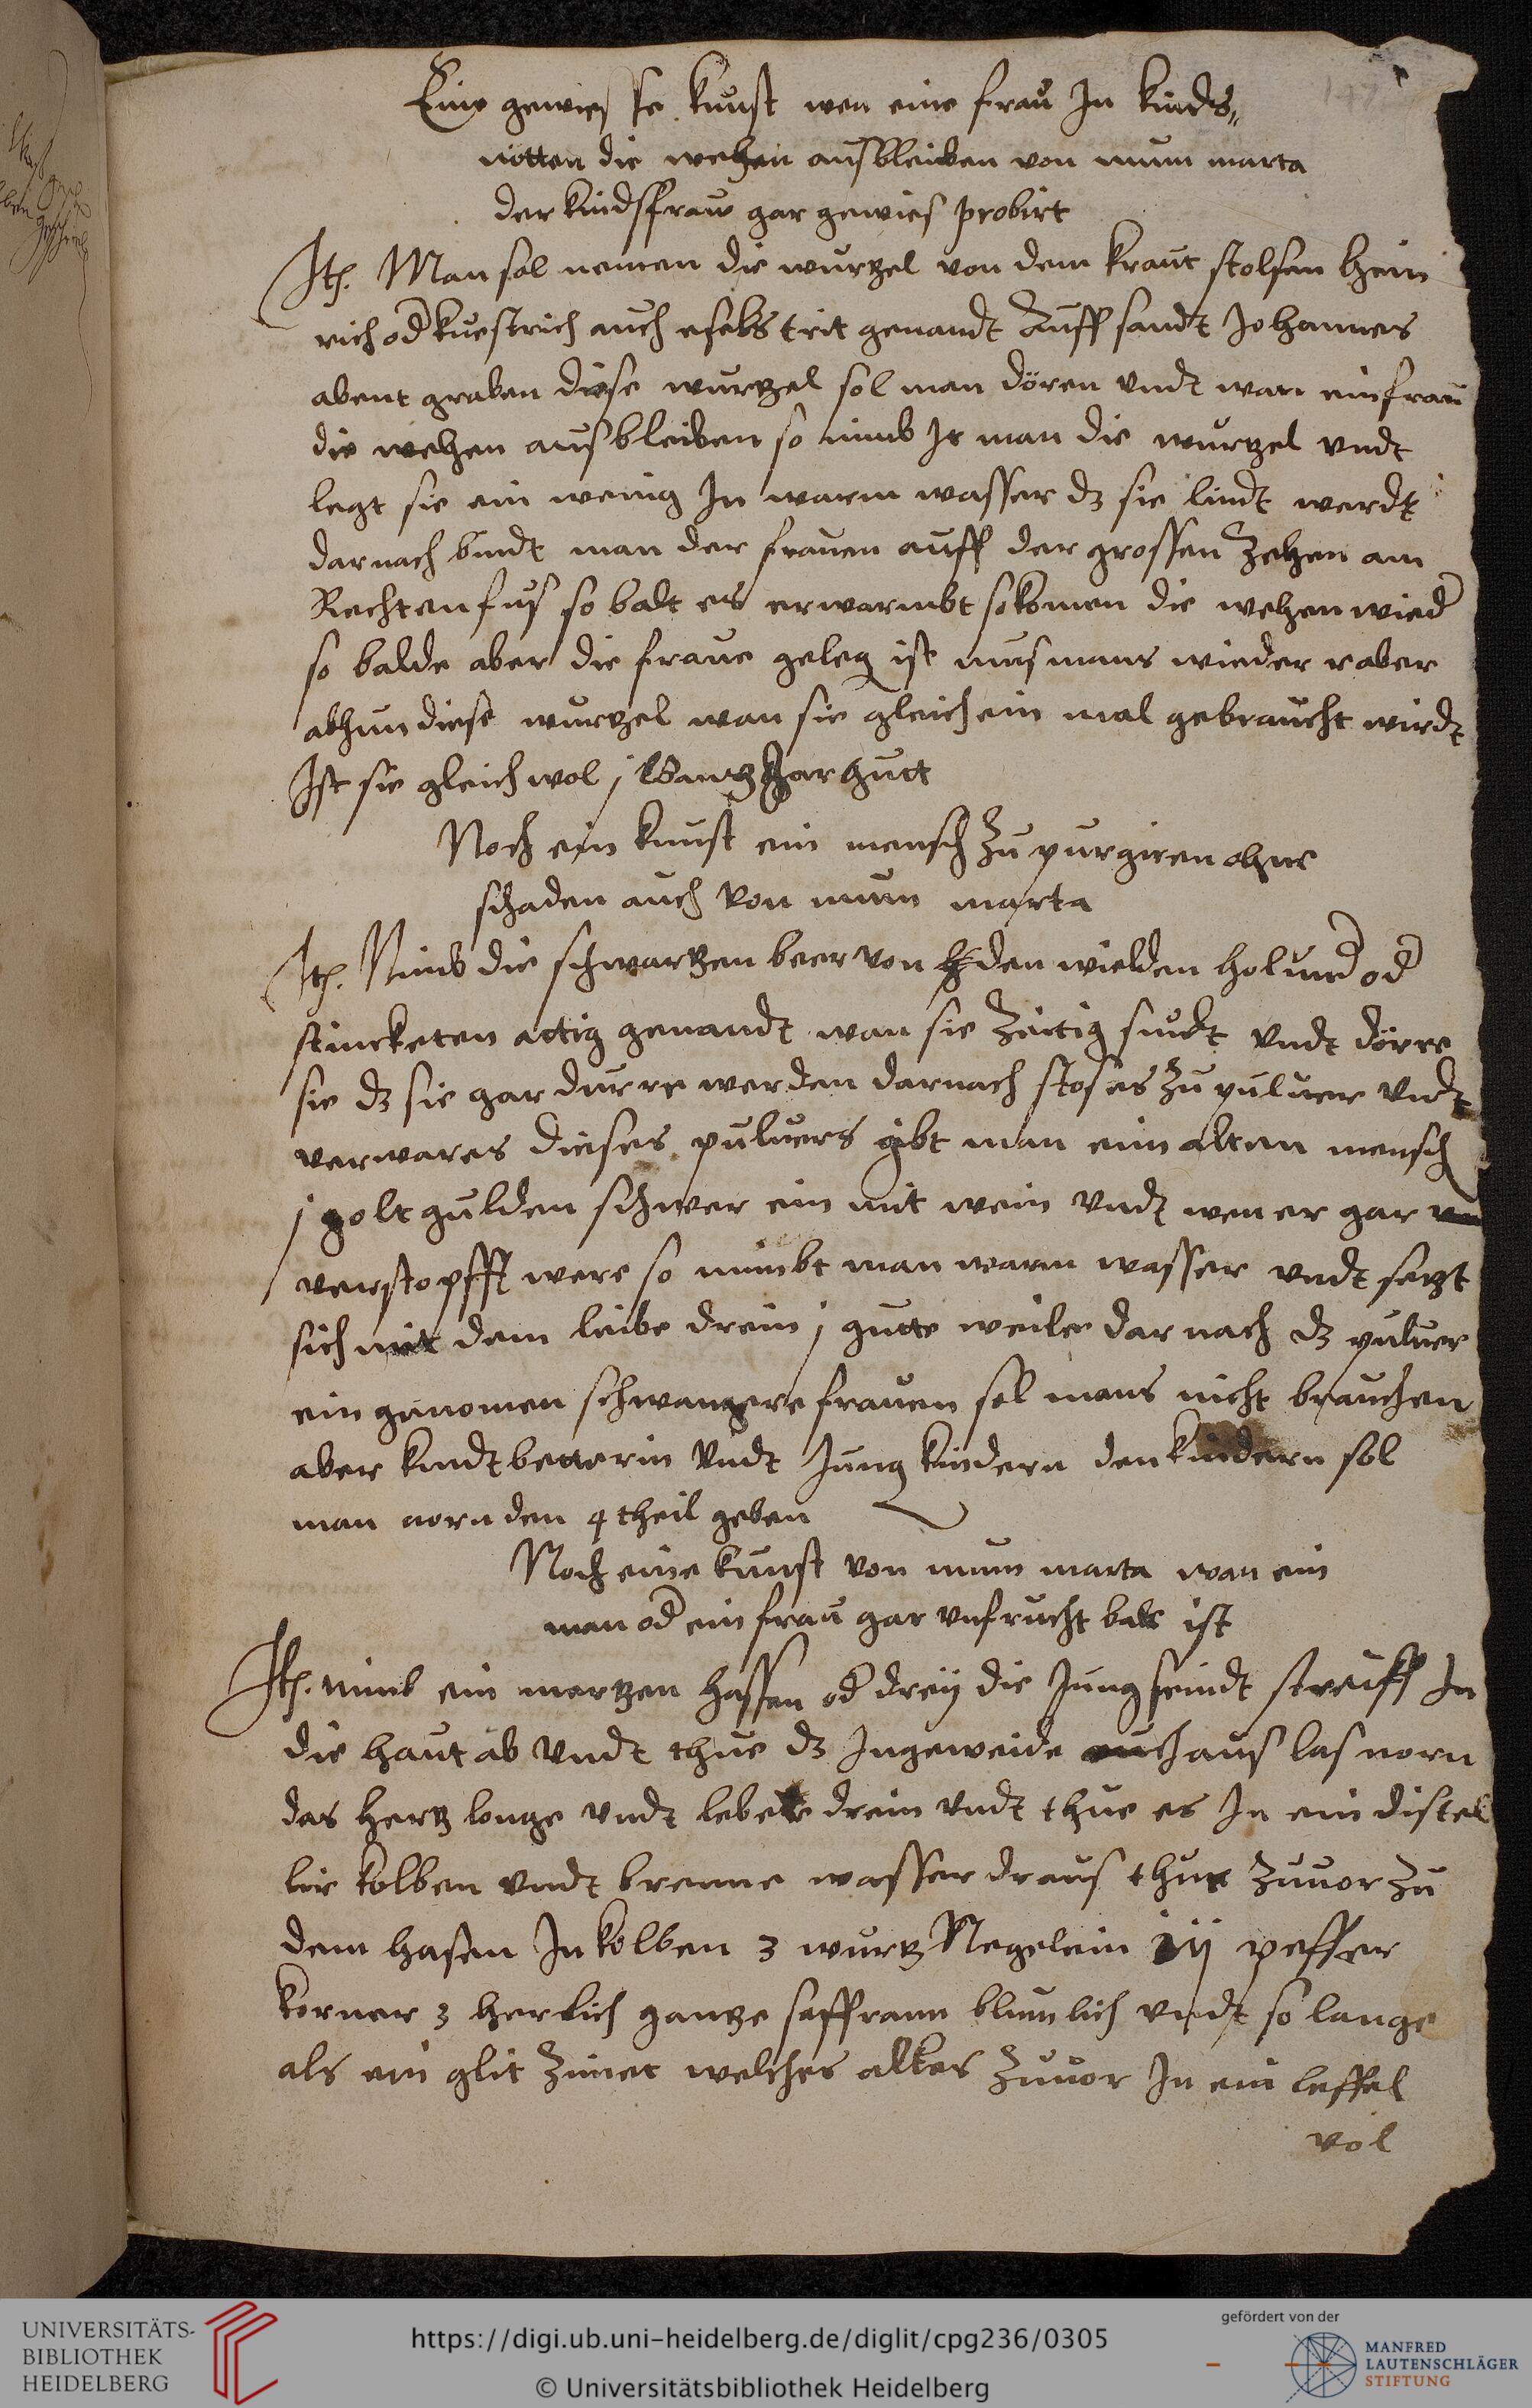 147
Eine gewiesse kunst wen eine frau In kinds„
nötten die wehen ausbleiben von mum marta
der kindsfraw gar gewies probirt
Itē. Man sol nemen die wurtzel von dem kraut stolsen hein
rich od kuestrich auch esels trit genandt Auff sandt Johannes
abent graben diese wurtzel sol man dören vndt wan ein frau
die wehen ausbleiben so nimb Ir man die wurtzel vndt
legt sie ein wenig In warm wasser dz sie lindt werdt
darnach bindt man der frauen auff der grossen Zehen am
Rechten fus so balt es erwarmbt so komen die wehen wied
so balde aber die fraue geleg ist mus mans wieder raber
abthun diese wurtzel wan sie gleich ein mal gebraucht wirdt
Ist sie gleich wol j gar gutt
Noch ein kunst ein mensch Zu purgiren ohne
schaden auch von mum marta
Itē. Nimb die schwartzen beer von den wielden holund od
stincketen attig genandt wan sie Zeitig sindt vndt dörre
sie dz sie gar durre werden darnach stos es Zu puluer vndt
verwares dieses puluers gibt man eim alten mensch
j golt gulden schwer ein mit wein vndt wen er gar
verstopfft were so nimbt man warm wasser vndt setzt
sich mit dem leibe drein j gutte weile dar nach dz puluer
ein genomen schwangere frauen sol mans nicht brauchen
aber kindtbetterin vndt Jung kindern den kindern sol
man norn den 4 theil geben
Noch eine kunst von mum marta wan ein
man od ein frau gar vnfrucht bar ist
Itē. nimb ein mertzen hassen od dreÿ die Jung seindt streiff In
die haut ab vndt thue dz Ingeweide auch aus las norn
das hertz longe vndt leber drein vndt thue es In ein distel
lir kolben vndt brenne wasser draus thue Zuuor Zu
dem hasen In kolben 3 wurtz Negelein iij peffer
korner 3 herlich gantze saffrann blumlich vndt so lange
als ein glit Zimet welches alles Zuuor In ein leffel
vol
UNIVERSITÄTS-
BIBLIOTHEK
HEIDELBERG
https://digi.ub.uni-heidelberg.de/diglit/cpg236/0305
© Universitätsbibliothek Heidelberg
gefördert von der
MANFRED
LAUTENSCHLÄGER
STIFTUNG